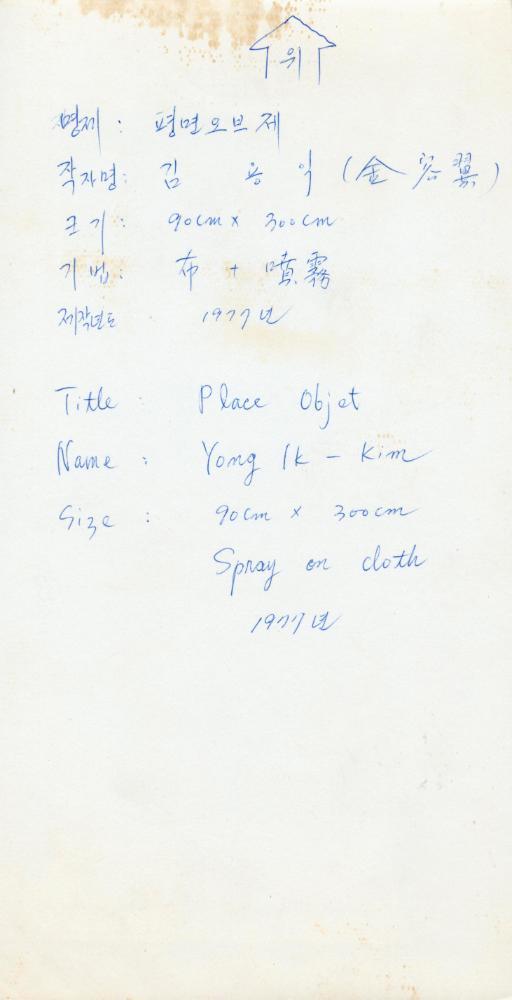 위
명제 : 평면오브제
작자명: 김 용 익 (金 容 翼)
크기 : 90cm x 300cm
기법 : 布 + 噴霧
제작년도 1977년
Title : Place Objet
Name : Yong Ik - Kim
Size : 90cm x 300cm
Spray on cloth
1977년